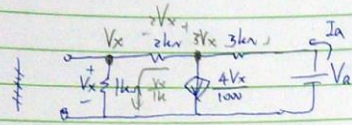 - 2Vx +
Vx 2kΩ 3Vx 3kΩ Ia
+ Vx - 1k Vx/1k 4Vx/1000 Va